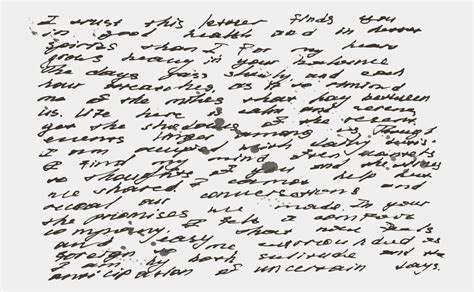 I trust this letter finds you
in good health and in better
spirits than I for my heart
grows heavy in your
The days pass slowly, and each
hour stretches, as if to remind
me of the miles that lay between
us. Life here is calm and serene
yet the shadows of the recent
events linger among us. Though
I am occupied with daily
I find my mind
to thoughts of you and the
we shared. I cannot help but
recall our conversations and
the promises we made. In your
company, I felt a comfort
and easy that now feels
foreign to me surrounded as
I am by both solitude and the
anticipation of uncertain days.